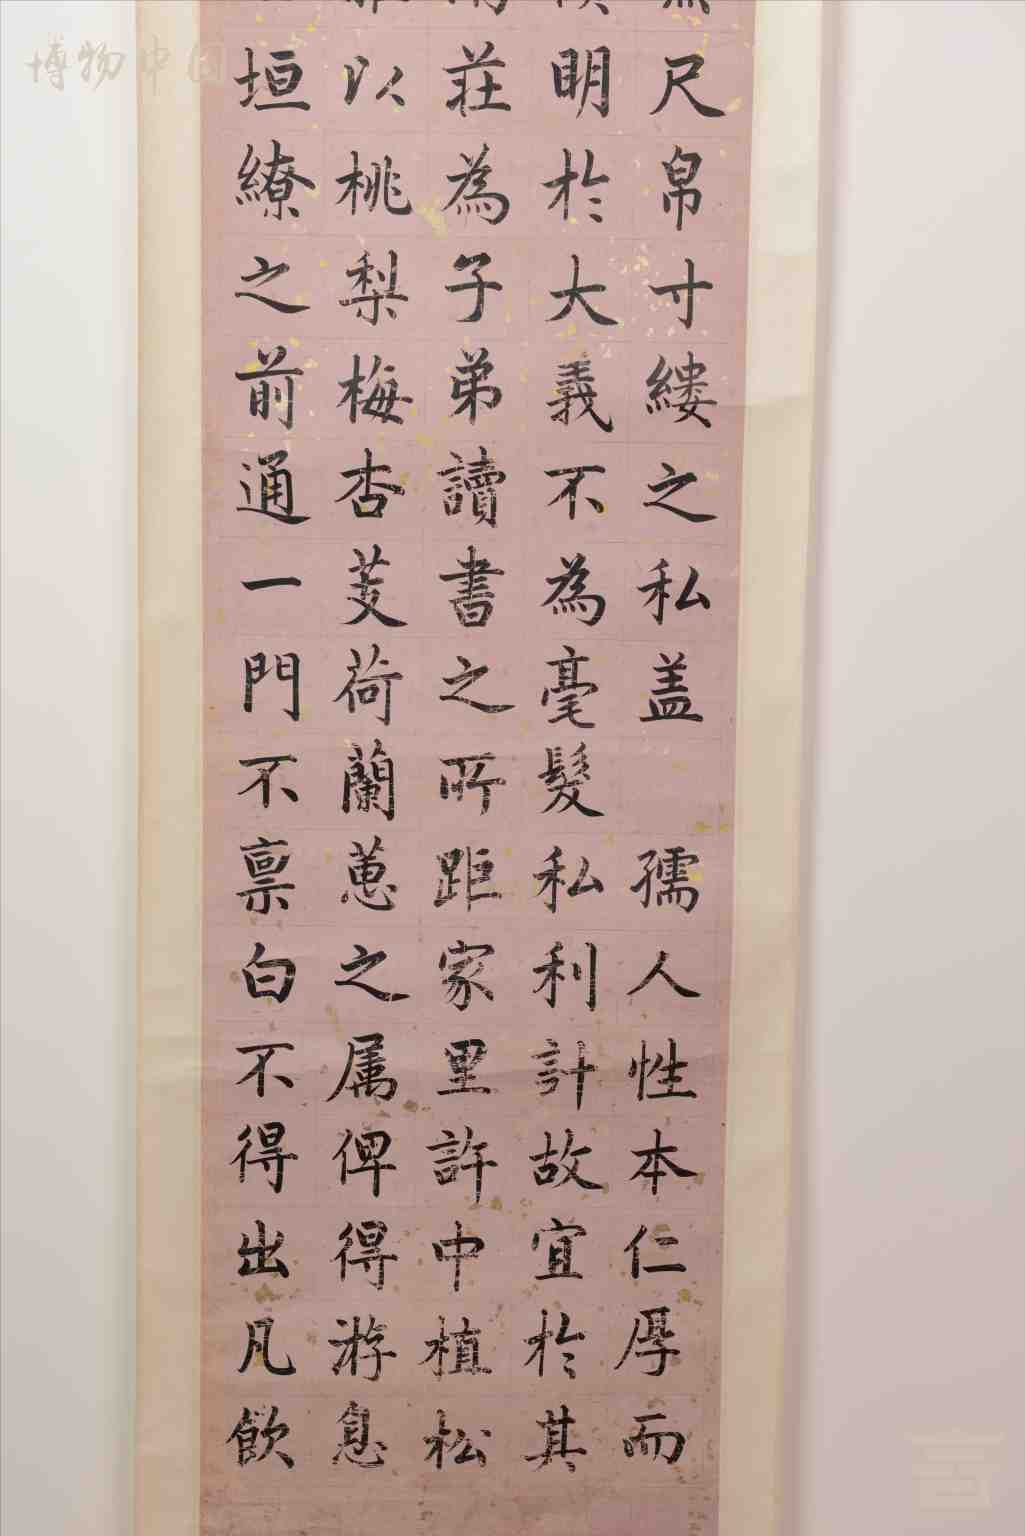 尺帛寸縷之私盖 孺人性本仁厚而
明於大義不為毫髮私利計故宜於其
莊為子弟讀書之所距家里許中植松
以桃梨梅杏芰荷蘭蕙之属俾得游息
垣繚之前通一門不禀白不得出凡飲
博物中国